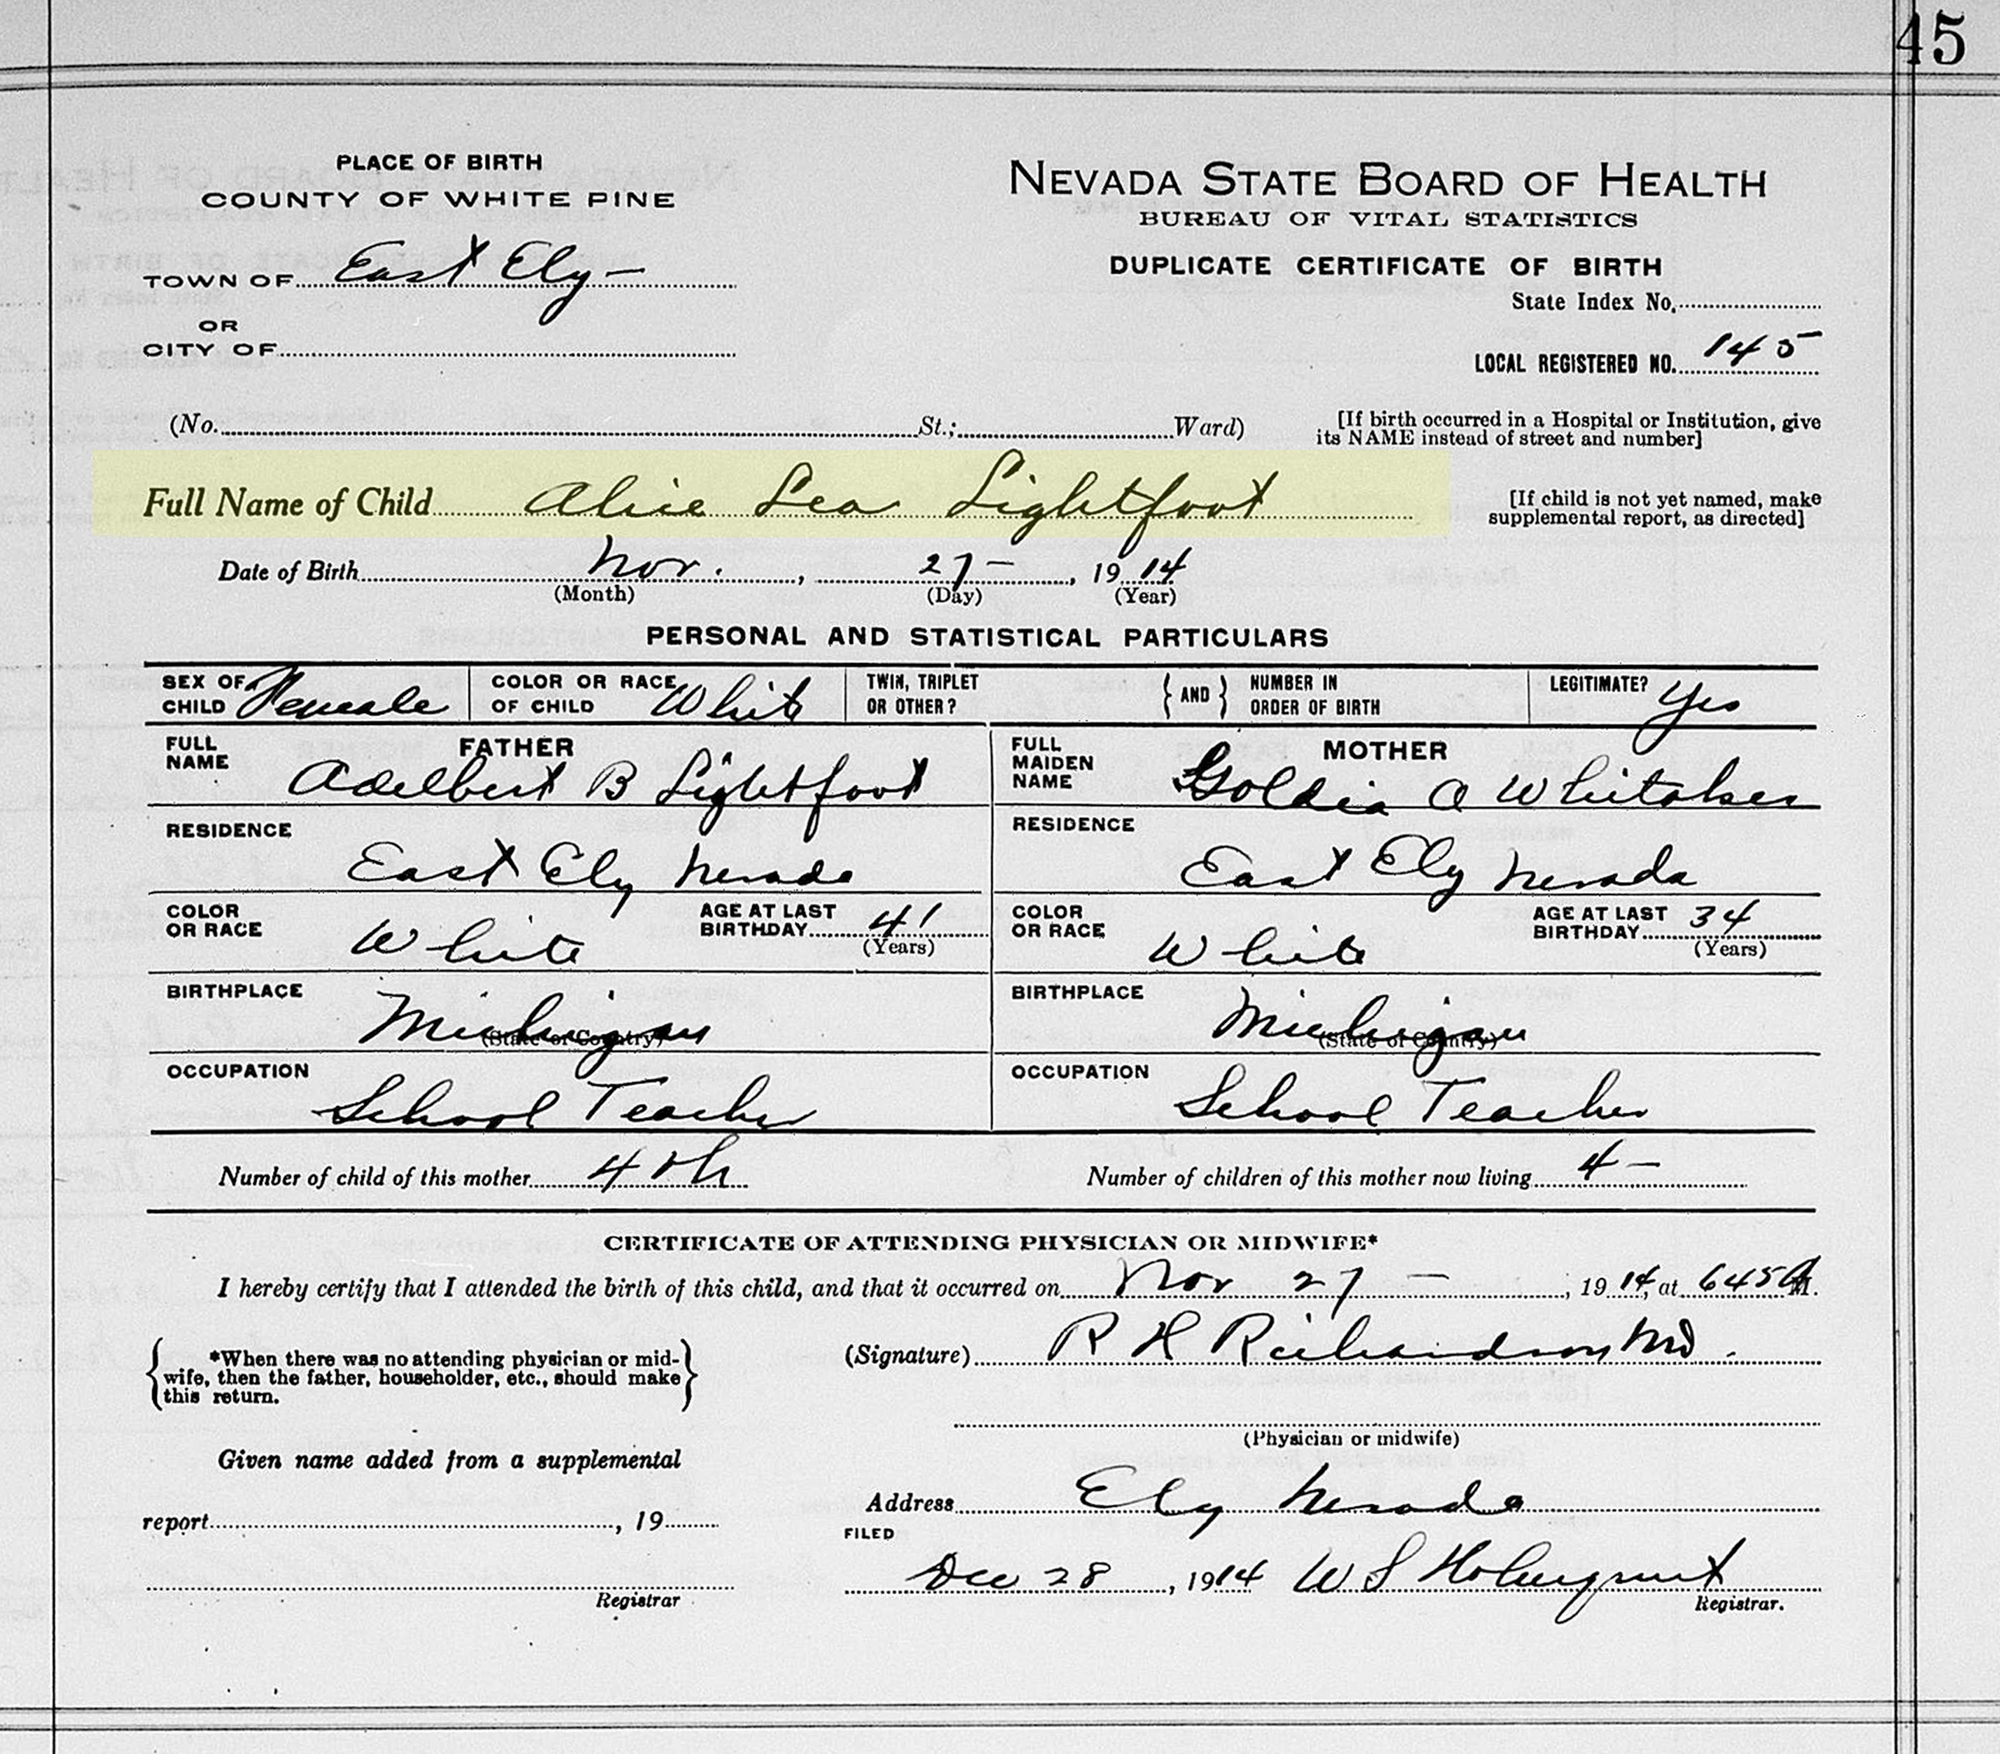 45
PLACE OF BIRTH
COUNTY OF WHITE PINE
TOWN OF East Ely -
OR
CITY OF
NEVADA STATE BOARD OF HEALTH
BUREAU OF VITAL STATISTICS
DUPLICATE CERTIFICATE OF BIRTH
State Index No.
LOCAL REGISTERED NO. 145
(No. St.; Ward)
[If birth occurred in a Hospital or Institution, give
its NAME instead of street and number]
Full Name of Child Alice Lea Lightfoot
[If child is not yet named, make
supplemental report, as directed]
Date of Birth Nov. , 27 - , 19 14
(Month) (Day) (Year)
PERSONAL AND STATISTICAL PARTICULARS
SEX OF CHILD Female
COLOR OR RACE OF CHILD White
TWIN, TRIPLET OR OTHER?
{AND} NUMBER IN ORDER OF BIRTH
LEGITIMATE? Yes
FATHER
FULL NAME Adelbert B Lightfoot
RESIDENCE
East Ely Nevada
COLOR OR RACE White
AGE AT LAST BIRTHDAY 41
(Years)
BIRTHPLACE Michigan
(State or Country)
OCCUPATION
School Teacher
MOTHER
FULL MAIDEN NAME Goldie A Whitaker
RESIDENCE
East Ely Nevada
COLOR OR RACE White
AGE AT LAST BIRTHDAY 34
(Years)
BIRTHPLACE Michigan
(State or Country)
OCCUPATION
School Teacher
Number of child of this mother 4th
Number of children of this mother now living 4 -
CERTIFICATE OF ATTENDING PHYSICIAN OR MIDWIFE*
I hereby certify that I attended the birth of this child, and that it occurred on Nov 27 - , 19 14, at 645 A M.
*When there was no attending physician or mid-
wife, then the father, householder, etc., should make
this return.
(Signature) R H Richardson MD.
(Physician or midwife)
Given name added from a supplemental
report , 19
Registrar
Address Ely Nevada
FILED
Dec 28 , 1914 W S
Registrar.